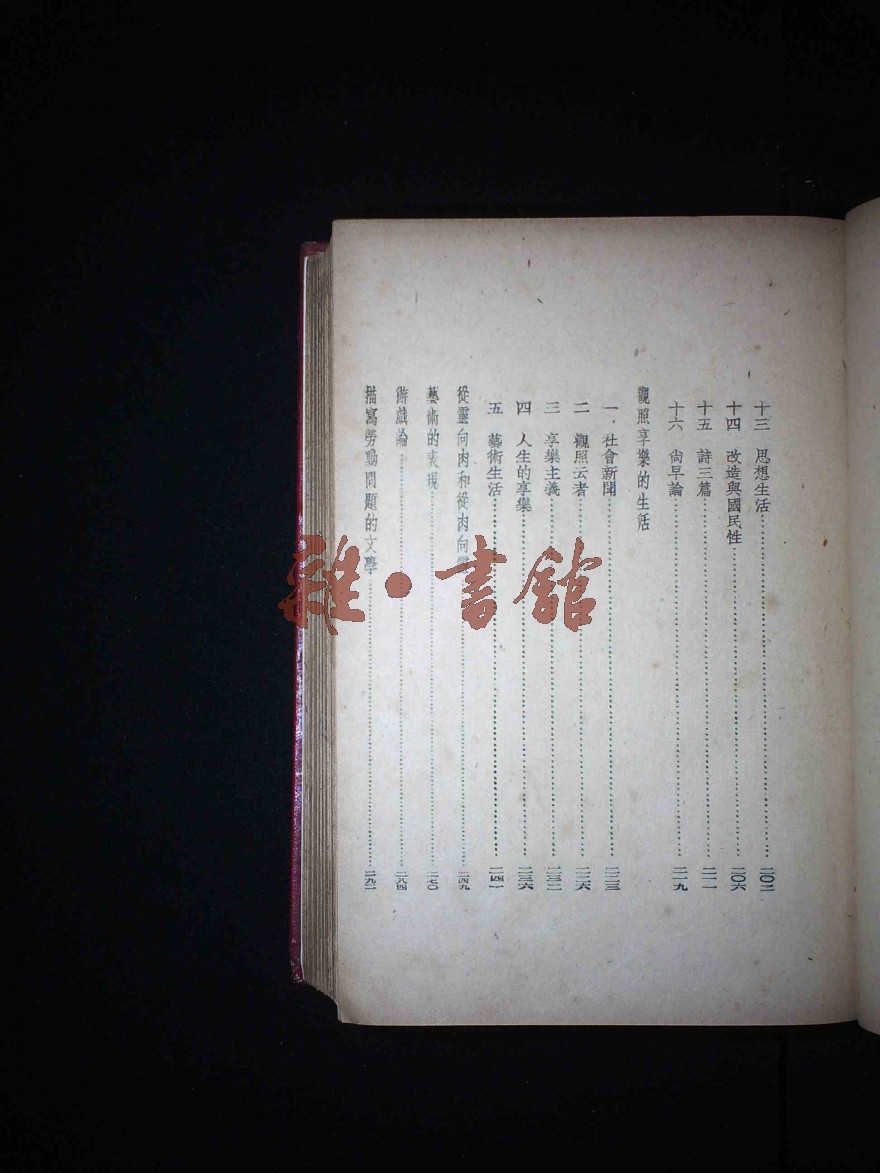 十三 思想生活……二〇二
十四 改造與國民性……二〇六
十五 詩三篇……二一一
十六 尙早論……二一九
觀照享樂的生活
一 社會新聞……二二三
二 觀照云者……二二六
三 享樂主義……二三二
四 人生的享樂……二三六
五 藝術生活……二四一
從靈向肉和從肉向……二四九
藝術的表現……二七〇
游戲論……二八四
描寫勞動問題的文學……二九二
雜·書館